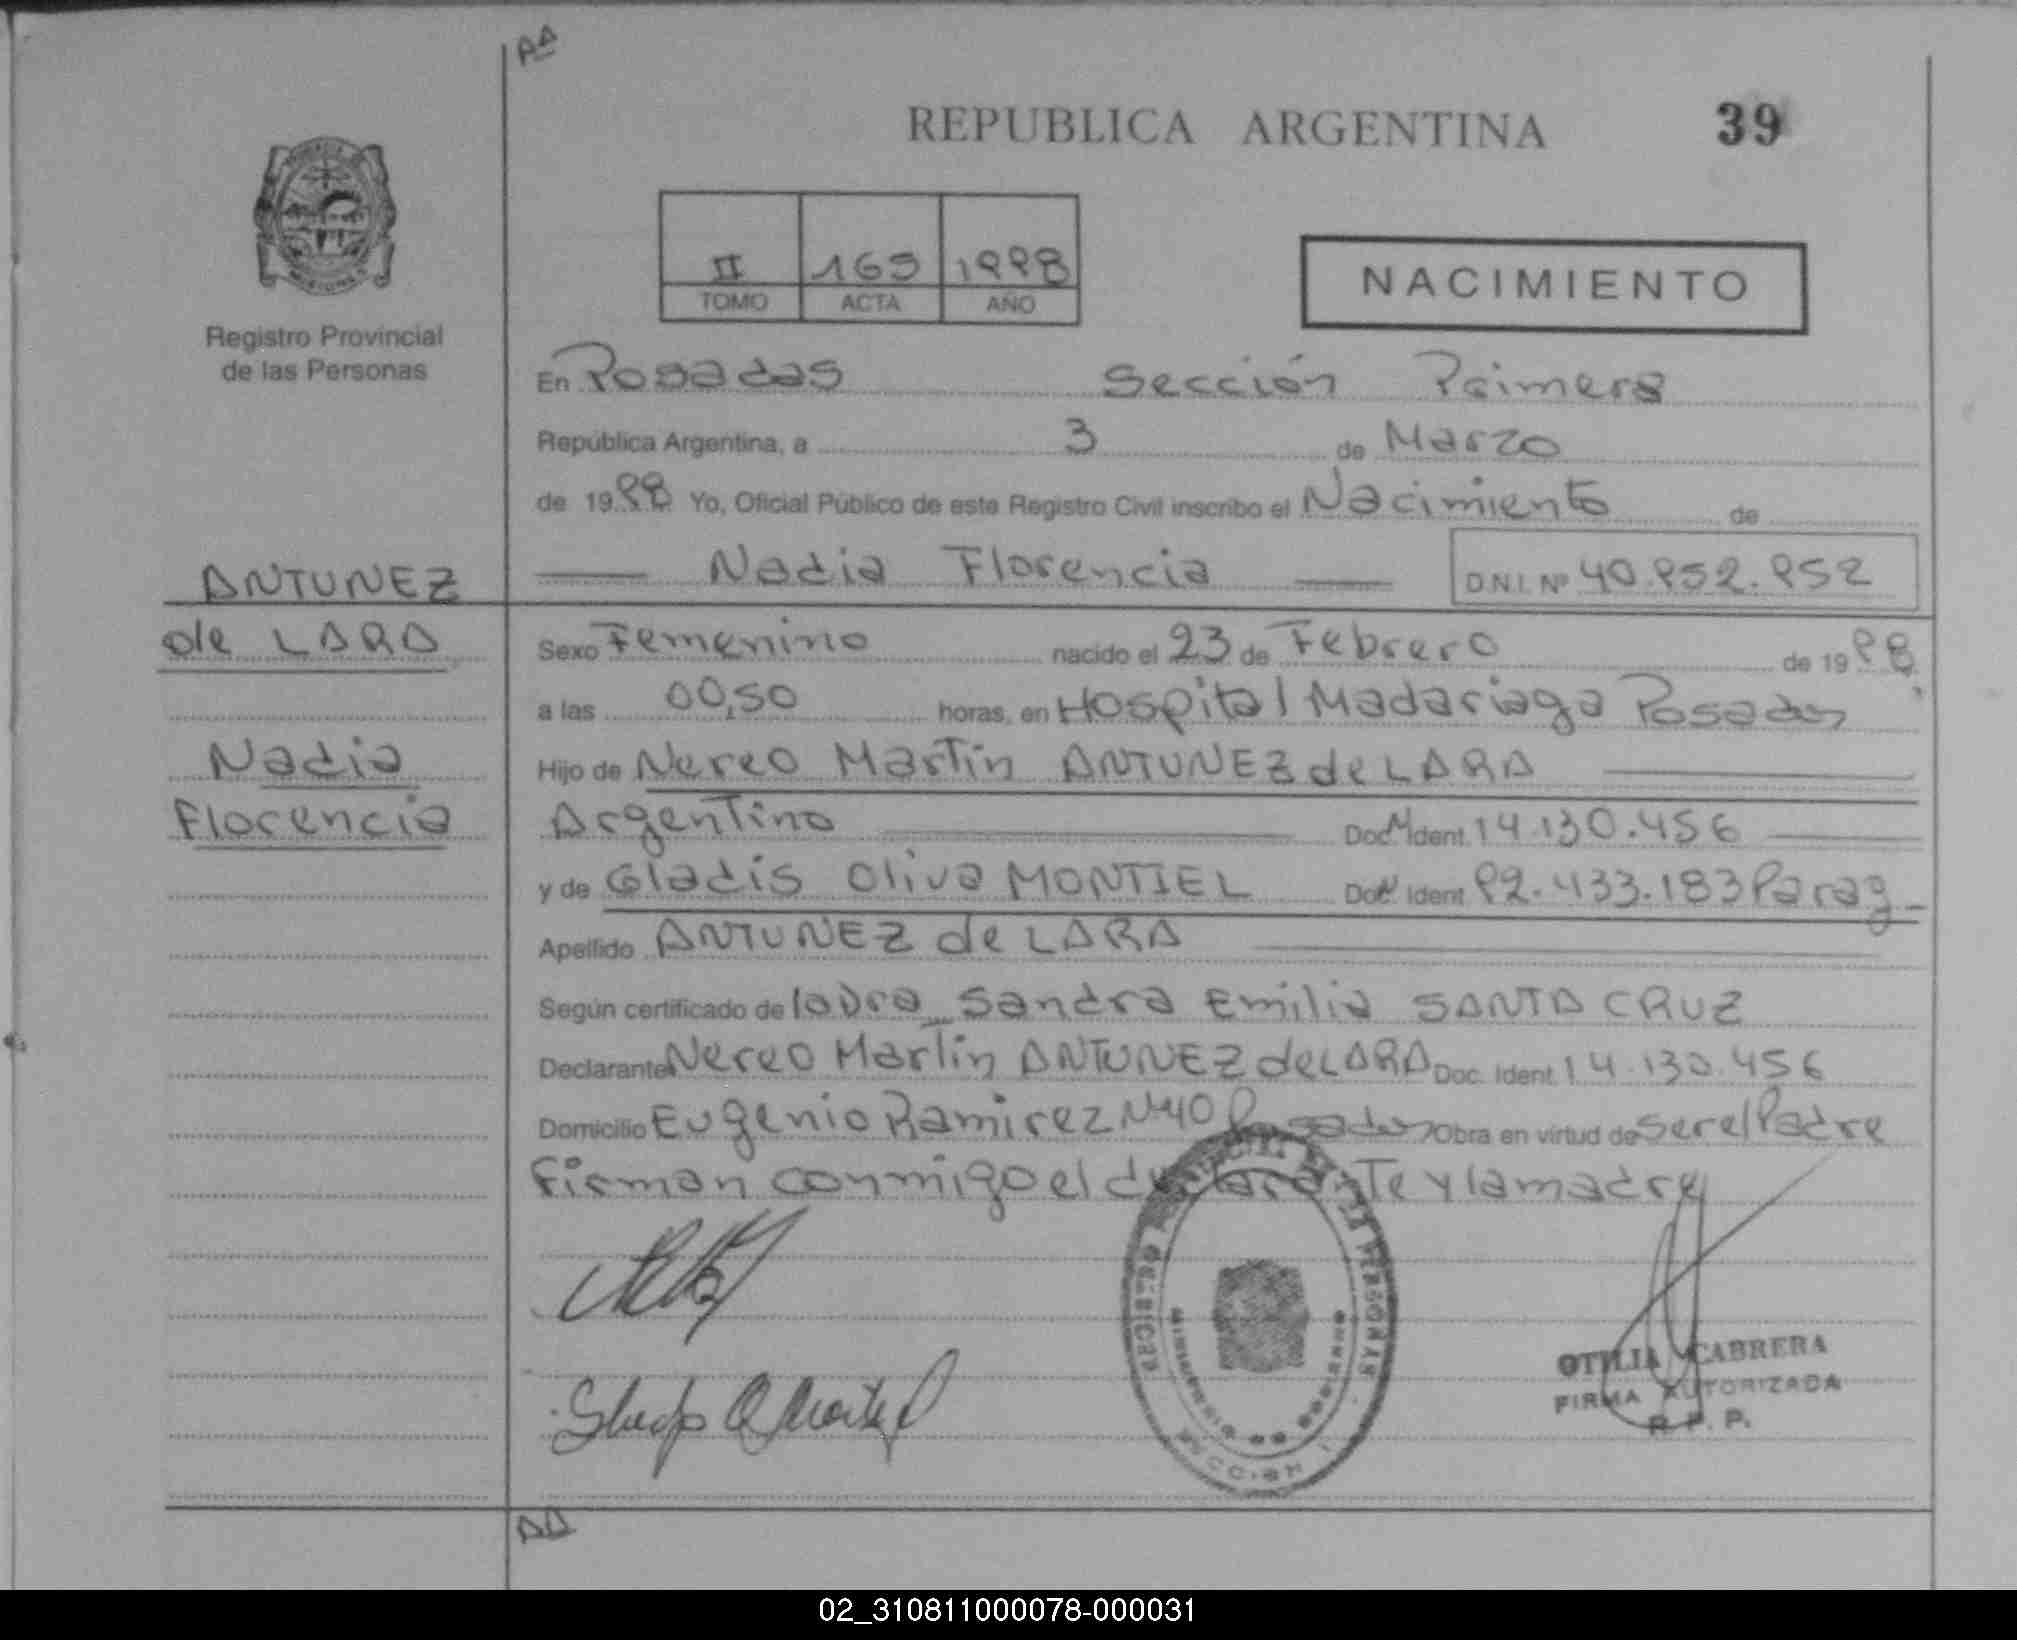 AA
REPUBLICA ARGENTINA 39
II 165 1998
TOMO ACTA AÑO
NACIMIENTO
Registro Provincial
de las Personas
En Posadas Sección Primera
República Argentina, a 3 de Marzo
de 1998 Yo, Oficial Público de este Registro Civil inscribo el Nacimiento de
Nadia Florencia D.N.I. Nº 40.952.952
ANTUNEZ
de LARA
Nadia
Florencia
Sexo Femenino nacido el 23 de Febrero de 1998
a las 00,50 horas, en Hospital Madariaga Posadas
Hijo de Nereo Martín ANTUNEZ de LARA
Argentino Doc. M Ident. 14.130.456
y de Gladis Oliva MONTIEL Doc. Ident. 92.433.183 Parag
Apellido ANTUNEZ de LARA
Según certificado de la Dra Sandra Emilia SANTA CRUZ
Declarante Nereo Martín ANTUNEZ de LARA Doc. Ident. 14.130.456
Domicilio Eugenio Ramirez Nº 40 Posadas Obra en virtud de ser el Padre
Firman conmigo el declarante y la madre
OTILIA CABRERA
FIRMA AUTORIZADA
R. P. P.
AA
02_310811000078-000031